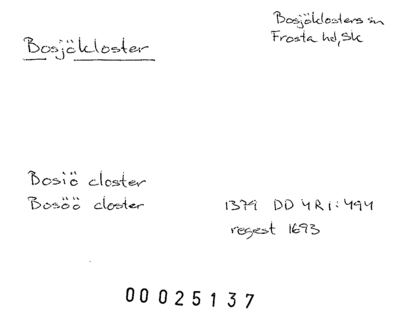 Bosjökloster
Bosjöklosters sn
Frosta hd, Sk
Bosiö closter
Bosöö closter
1379 DD 4R1:494
regest 1693
00025137